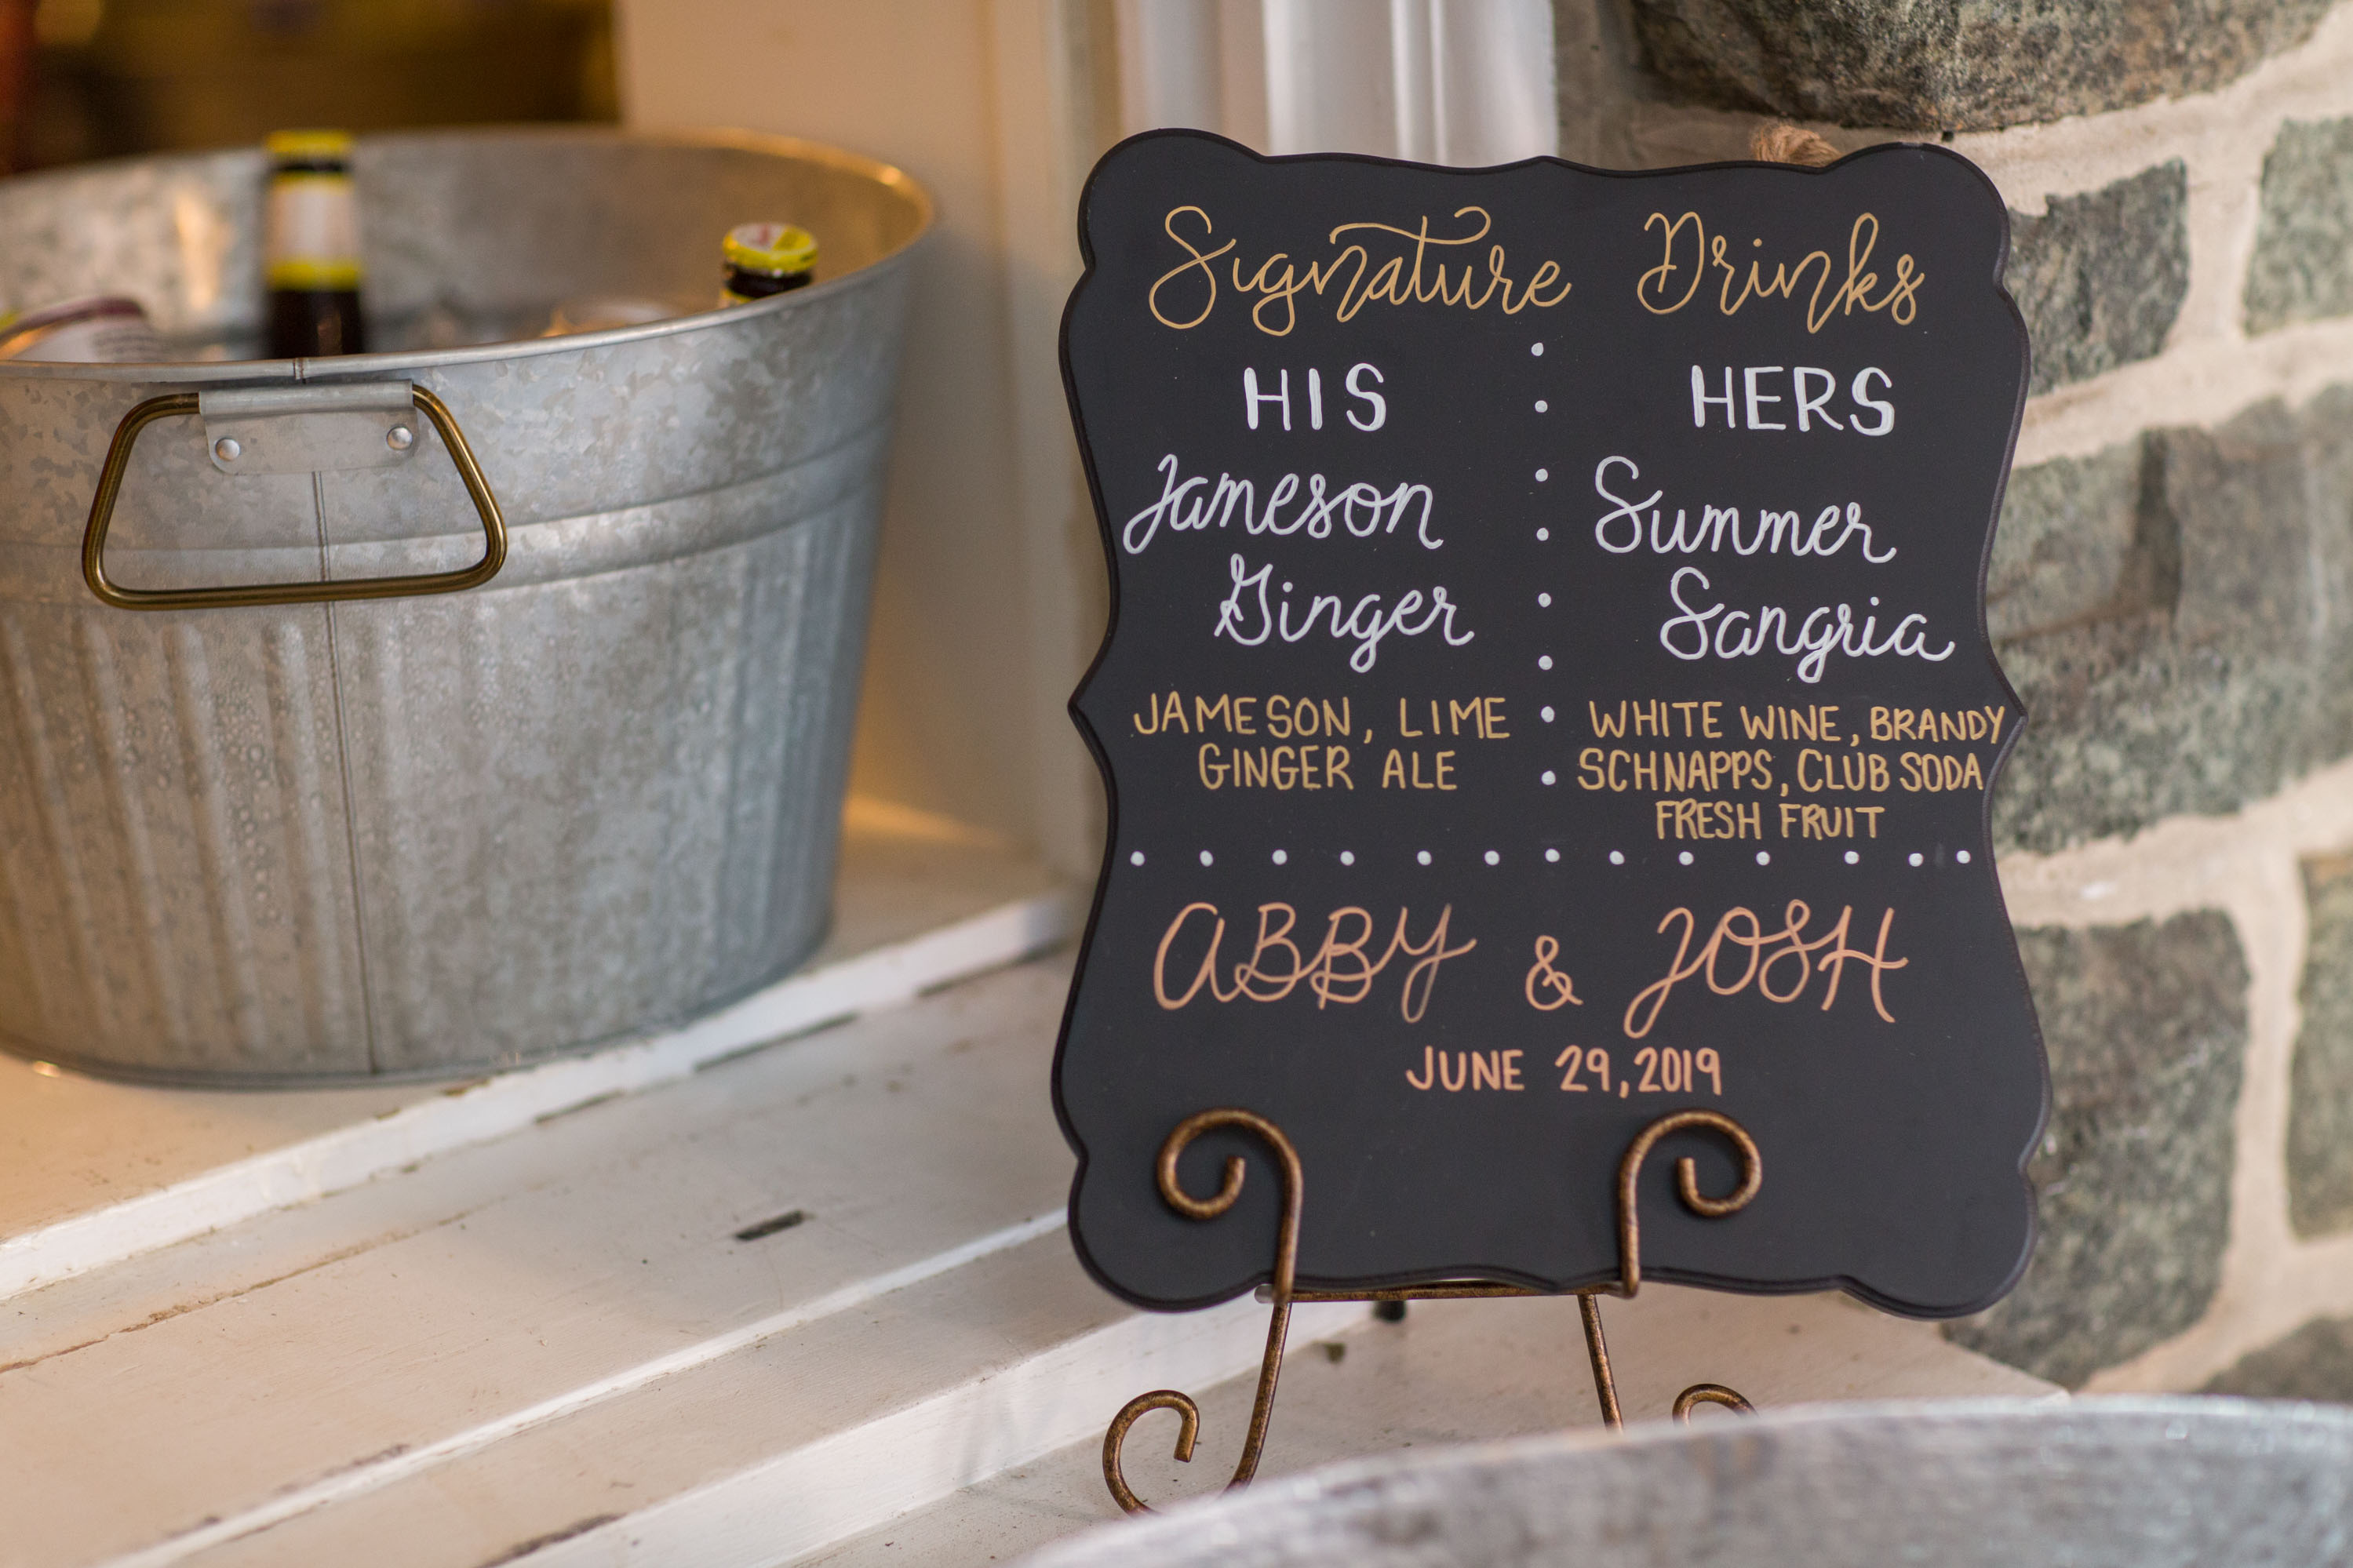 Signature Drinks
HIS
Jameson
Ginger
JAMESON, LIME
GINGER ALE
HERS
Summer
Sangria
WHITE WINE, BRANDY
SCHNAPPS, CLUB SODA
FRESH FRUIT
ABBY & JOSH
JUNE 29, 2019